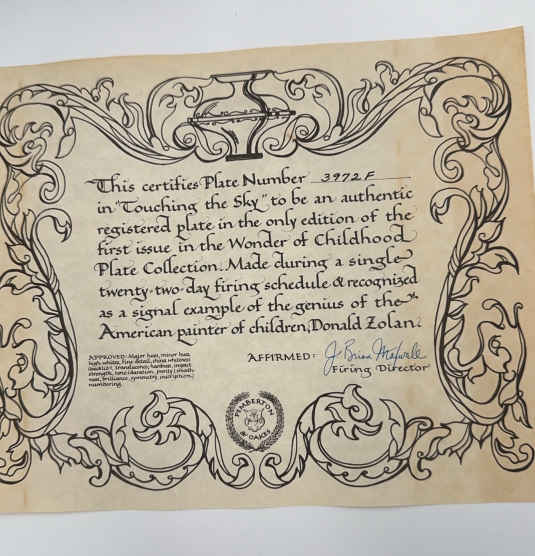 This certifies Plate Number 3972F
in "Touching the Sky" to be an authentic
registered plate in the only edition of the
first issue in the Wonder of Childhood
Plate Collection. Made during a single
twenty-two-day firing schedule & recognized
as a signal example of the genius of the
American painter of children, Donald Zolan.
APPROVED: Major hues, minor hues,
high whites, fine detail, china whiteness
translucence, hardness, impact
strength, tone, purity, smooth-
ness, brilliance, symmetry, inscription,
numbering.
AFFIRMED: J. Brian Maxwell
Firing Director
PEMBERTON
& OAKES